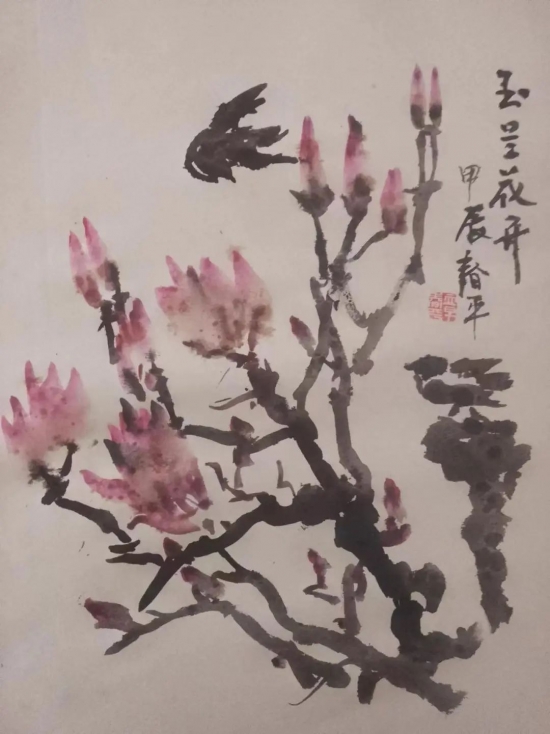 玉兰花开
甲辰春平